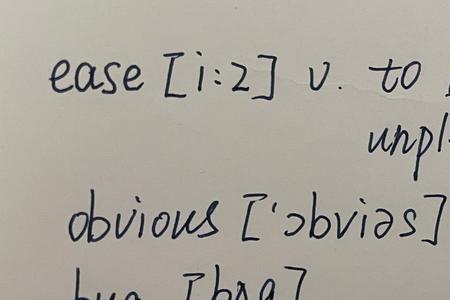 ease [i:z] v. to
obvious ['ɔbviəs]